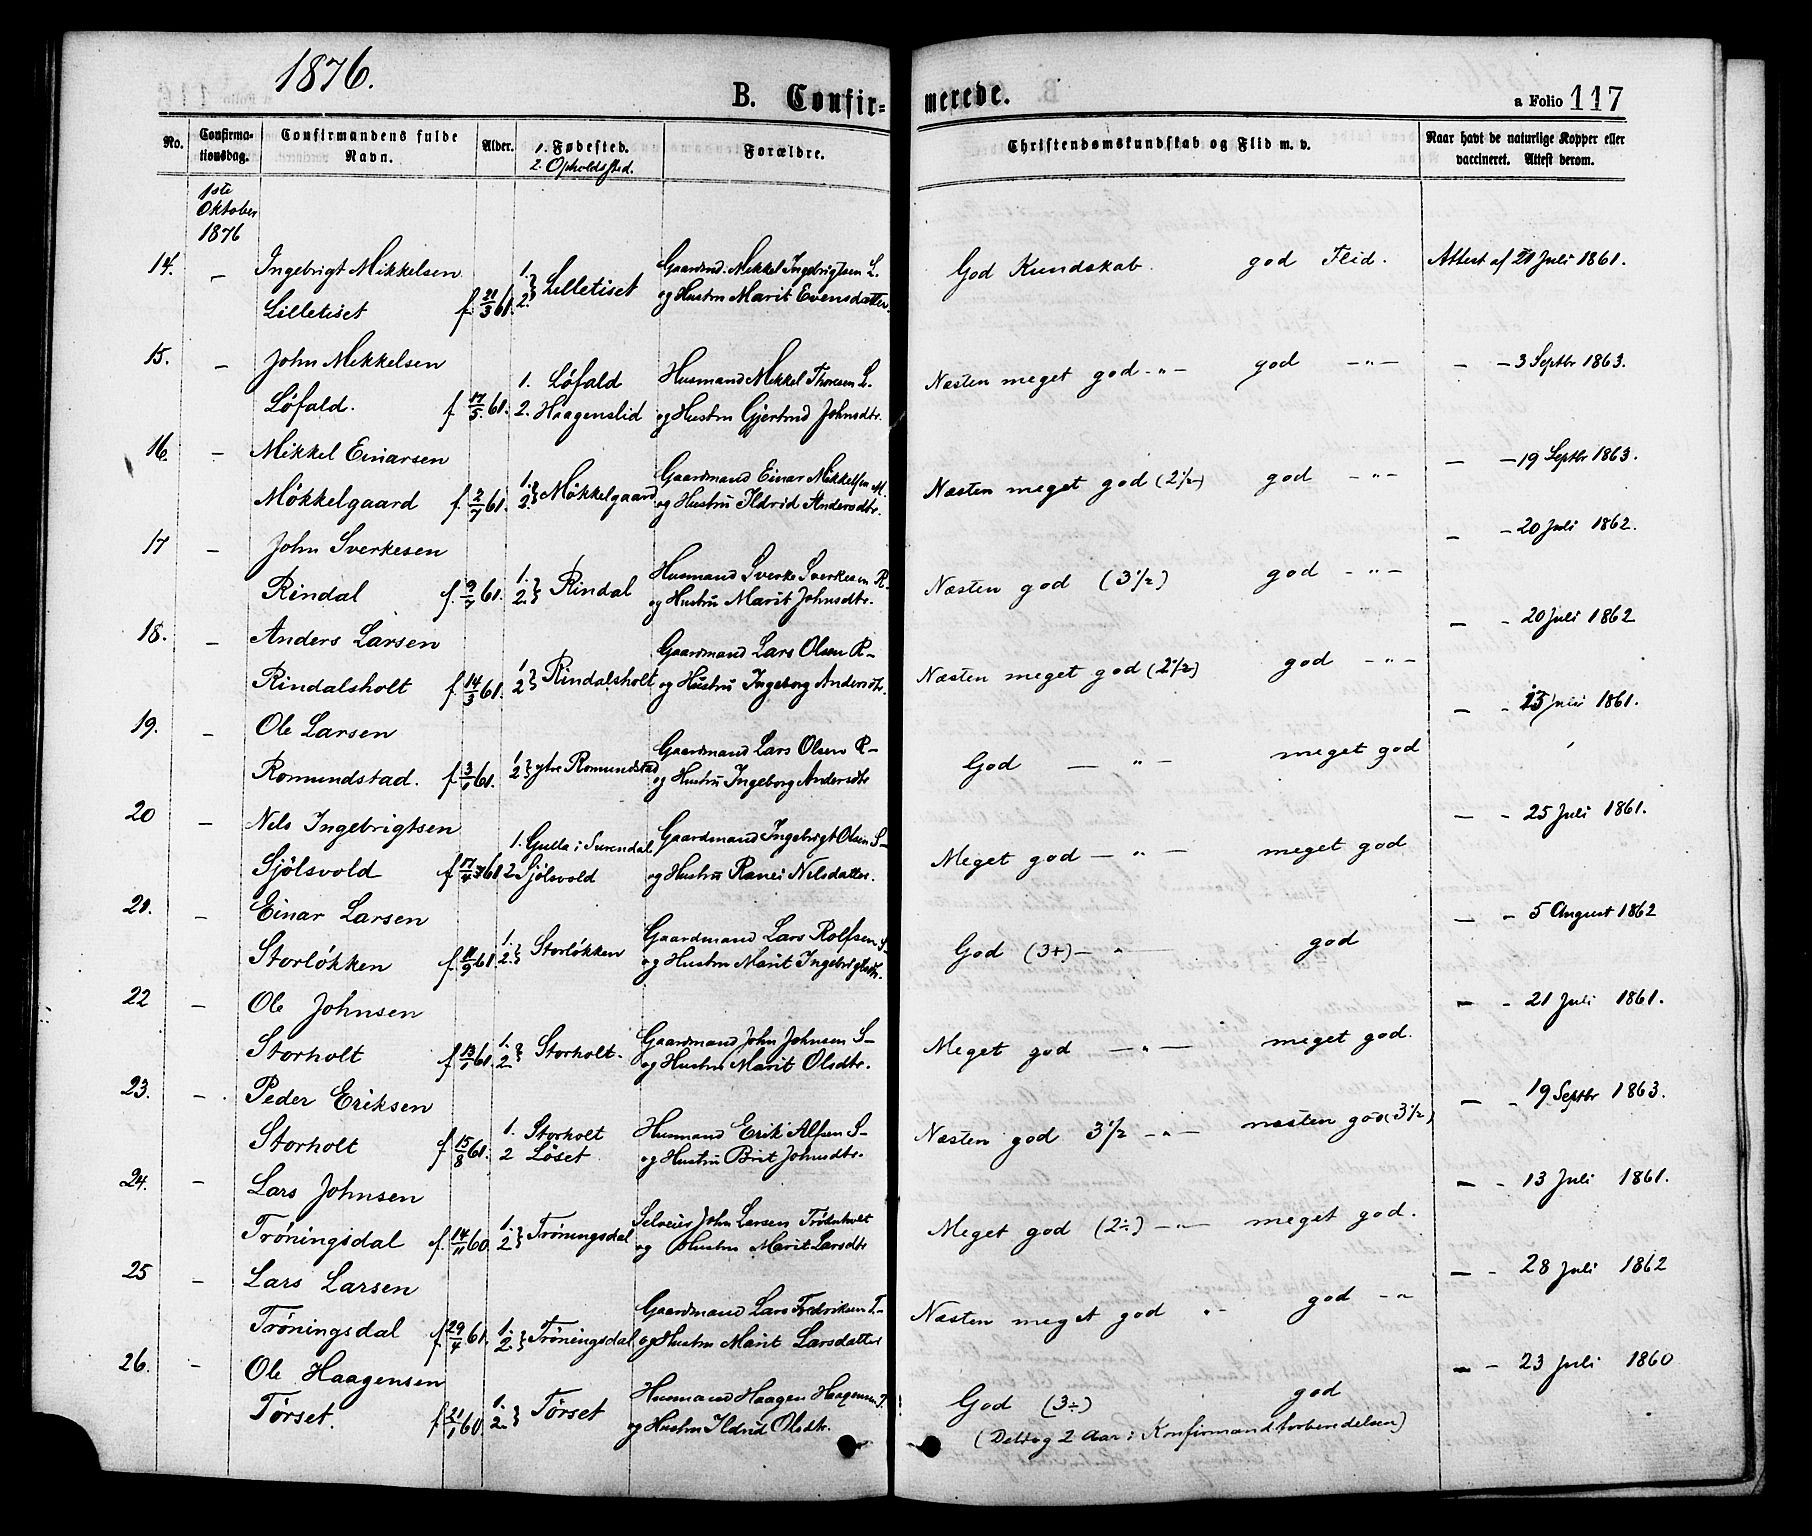 1876.
B. Confir-
merede.
a Folio 117
No.
Confirma-
tionsdag.
Confirmandens fulde
Navn.
Alder.
1. Fødested.
2. Opholdssted.
Forældre.
Christendomskundskab og Flid m. v.
Naar havt de naturlige Kopper eller
vaccineret. Attest derom.
1ste
Oktober
1876
14. – Ingebrigt Mikkelsen
Lilletiset f. 21/3 61. 1. 2. } Lilletiset
Gaardmd. Mikkel Ingebrigtsen L.
og Hustru Marit Evensdatter.
God Kundskab. god Flid. Attest af 21 Juli 1861.
15. – John Mikkelsen
Løfald. f. 17/5 61.
1. Løfald
2. Haagenslid
Husmand Mikkel Thoresen L.
og Hustru Gjertrud Johnsdtr.
Næsten meget god –"– god –"– – – 3 Septbr 1863.
16. – Mikkel Einarsen
Møkkelgaard f. 2/7 61. 1. 2. } Møkkelgaard
Gaardmand Einar Mikkelsen M.
og Hustru Ildrid Andersdtr.
Næsten meget god (2½) god –"– – – 19 Septbr 1863.
17 – John Sverkesen
Rindal f. 9/7 61. 1. 2. } Rindal
Husmand Sverke Sverkesen R.
og Hustru Marit Johnsdtr.
Næsten god (3½) god –"– – – 20 Juli 1862.
18. – Anders Larsen
Rindalsholt f. 14/3 61. 1. 2. } Rindalsholt
Gaardmand Lars Olsen R–
og Hustru Ingeborg Andersdtr.
Næsten meget god (2½) god –"– – – 20 Juli 1862
19. – Ole Larsen
Romundstad. f. 3/1 61. 1. 2. } ytre Romundstad
Gaardmand Lars Olsen R–
og Hustru Ingeborg Andersdtr
God –"– meget god – – Juli 1861.
20 – Nils Ingebrigtsen
Sjølsvold f. 17/4 61
1. Gulla i Surendal
2. Sjølsvold
Gaardmand Ingebrigt Olsen S–
og Hustru Ranei Nilsdatter.
Meget god –"– meget god – – 25 Juli 1861.
21. – Einar Larsen
Storløkken f. 11/9 61. 1. 2. } Storløkken
Gaardmand Lars Rolfsen S–
og Hustru Marit Ingebrigtsdtr.
God (3+) –"– god – – 5 August 1862
22 – Ole Johnsen
Storholt f. 13/1 61. 1. 2. } Storholt.
Gaardmand John Johnsen S–
og Hustru Marit Olsdtr.
Meget god –"– meget god. – – 21 Juli 1861.
23. – Peder Eriksen
Storholt f. 15/8 61.
1. Storholt
2 Løset
Husmand Erik Alfsen S–
og Hustru Brit Johnsdtr.
Næsten god 3½ –"– næsten god (3½) – – 19 Septbr 1863.
24. – Lars Johnsen
Trøningsdal f. 14/11 60. 1. 2. } Trøningsdal
Selveier John Larsen
og Hustru Marit Larsdtr
Meget god (2÷) –"– meget god. – – 13 Juli 1861.
25 – Lars Larsen
Trøningsdal f. 29/4 61. 1. 2. } Trøningsdal
Gaardmand Lars Fredriksen T–
og Hustru Marit Larsdatter
Næsten meget god "– god –" – – 28 Juli 1862
26. – Ole Haagensen
Tørset. f. 21/1 60. 1. 2. } Tørset
Husmand Haagen Haagensen T.
og Hustru Ildrid Olsdtr.
God (3÷) god – – 23 Juli 1860
(Deltog 2 Aar i Konfirmandforberedelsen)